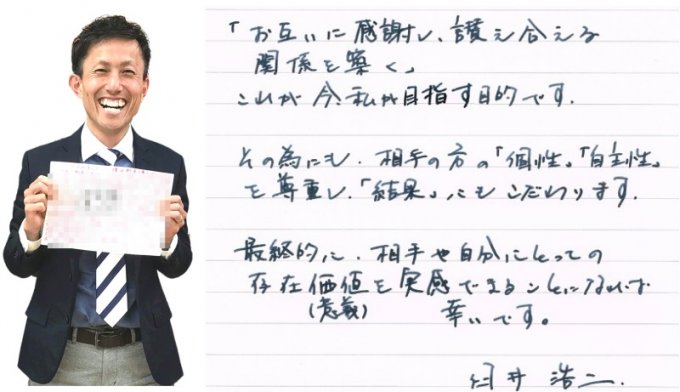 「お互いに感謝し、讃え合える
関係を築く」
これが今、私が目指す目的です.
その為にも、相手の方の「個性」「自主性」
を尊重し、「結果」にもこだわります.
最終的に、相手や自分にとっての
存在価値を実感できることになれば
(意義) 幸いです。
臼井 浩二.